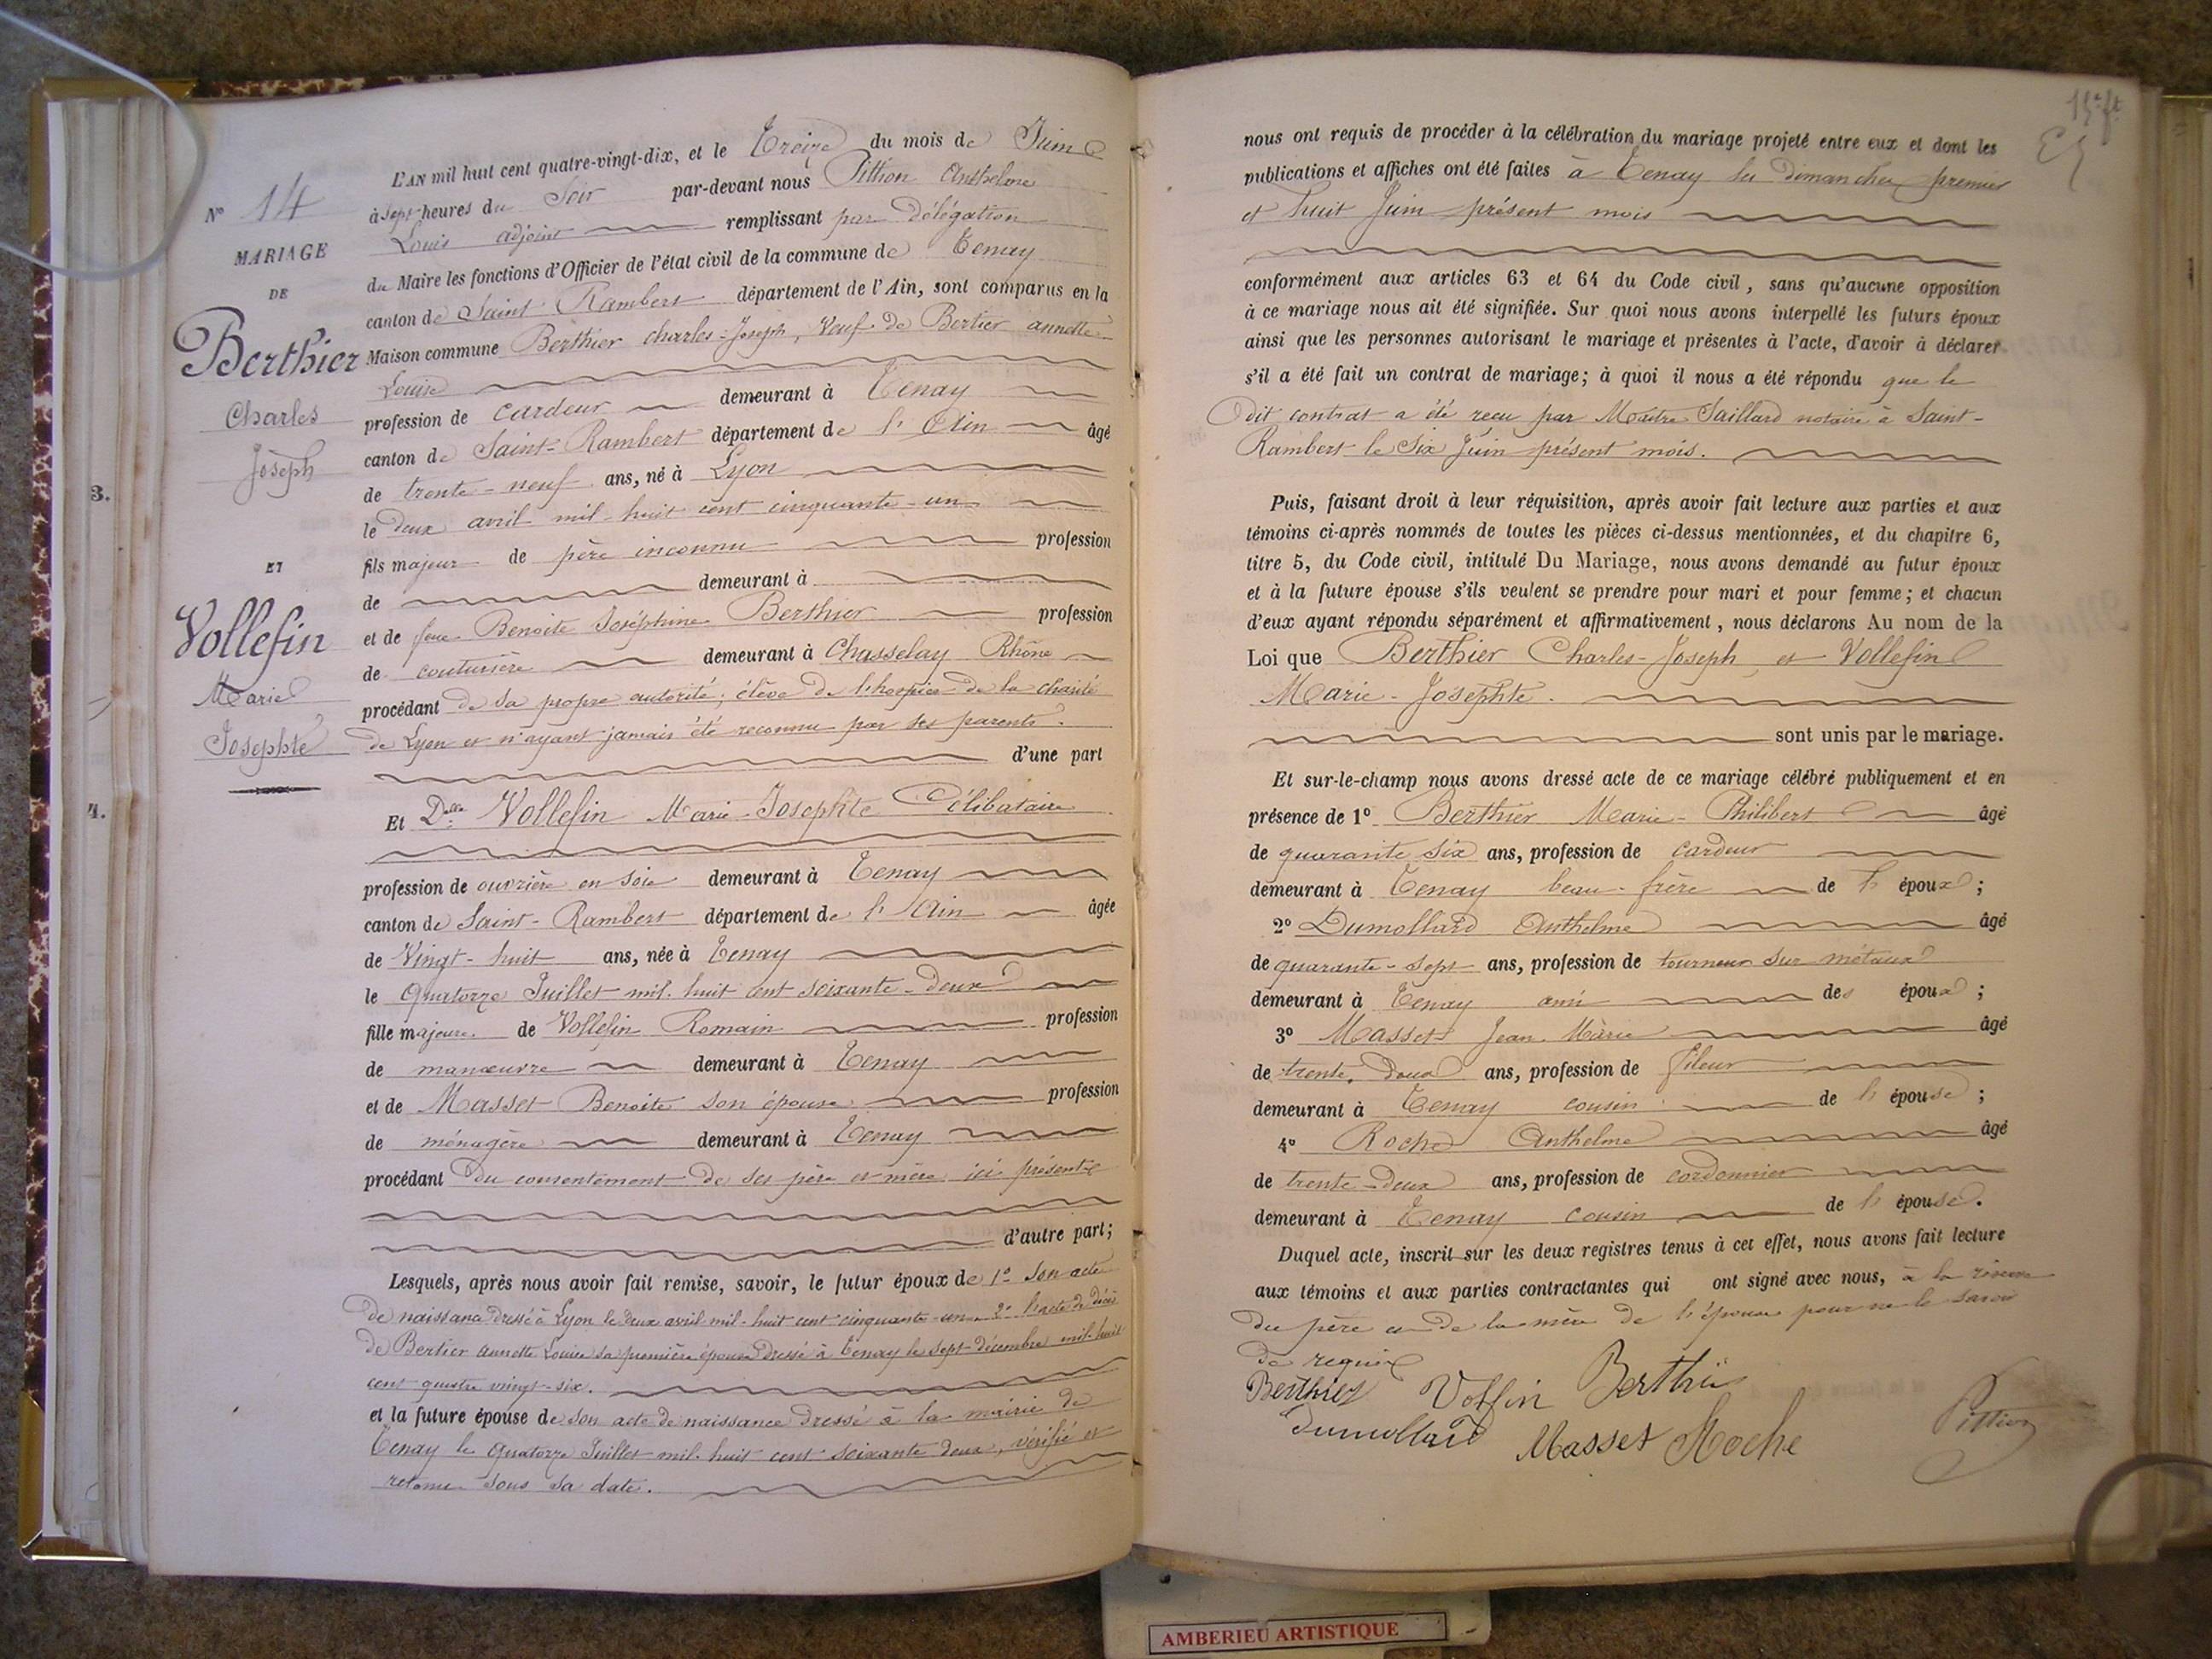 N° 14
MARIAGE
DE
Berthier
Charles
Joseph
ET
Vollefin
Marie
Josephte
3.
4.
L'AN mil huit cent quatre-vingt-dix, et le Treize du mois de Juin
à Sept heures du Soir par-devant nous Pittion Anthelme
Louis adjoint remplissant par délégation
du Maire les fonctions d'Officier de l'état civil de la commune de Tenay
canton de Saint-Rambert département de l'Ain, sont comparus en la
Maison commune Berthier Charles-Joseph, Veuf de Bertier annette
Louise
profession de cardeur demeurant à Tenay
canton de Saint-Rambert département de l'Ain âgé
de trente-neuf ans, né à Lyon
le deux avril mil-huit cent cinquante-un
fils majeur de père inconnu profession
de demeurant à
et de feue Benoite Joséphine Berthier profession
de couturière demeurant à Chasselay Rhône
procédant de sa propre autorité; élève de l'hospice de la charité
de Lyon et n'ayant jamais été reconnu par ses parents.
d'une part
Et Delle Vollefin Marie-Josephte Célibataire
profession de ouvrière en soie demeurant à Tenay
canton de Saint-Rambert département de l'Ain âgée
de Vingt-huit ans, née à Tenay
le Quatorze Juillet mil-huit cent soixante-deux
fille majeure de Vollefin Romain profession
de manœuvre demeurant à Tenay
et de Masset Benoite son épouse profession
de ménagère demeurant à Tenay
procédant du consentement de ses père et mère ici présents
d'autre part;
Lesquels, après nous avoir fait remise, savoir, le futur époux de 1° Son acte
de naissance dressé à Lyon le deux avril mil-huit cent cinquante-un 2° l'acte de décès
de Bertier annette Louise sa première épouse dressé à Tenay le sept décembre mil-huit
cent quatre vingt-six.
et la future épouse de son acte de naissance dressé à la mairie de
Tenay le quatorze Juillet mil-huit cent soixante deux, vérifié et
retenu sous sa date.
15e ft
nous ont requis de procéder à la célébration du mariage projeté entre eux et dont les
publications et affiches ont été faites à Tenay les dimanches premier
et huit Juin présent mois
conformément aux articles 63 et 64 du Code civil, sans qu'aucune opposition
à ce mariage nous ait été signifiée. Sur quoi nous avons interpellé les futurs époux
ainsi que les personnes autorisant le mariage et présentes à l'acte, d'avoir à déclarer
s'il a été fait un contrat de mariage; à quoi il nous a été répondu que le
dit contrat a été reçu par Maître Saillard notaire à Saint-
Rambert le Six Juin présent mois.
Puis, faisant droit à leur réquisition, après avoir fait lecture aux parties et aux
témoins ci-après nommés de toutes les pièces ci-dessus mentionnées, et du chapitre 6,
titre 5, du Code civil, intitulé Du Mariage, nous avons demandé au futur époux
et à la future épouse s'ils veulent se prendre pour mari et pour femme; et chacun
d'eux ayant répondu séparément et affirmativement, nous déclarons Au nom de la
Loi que Berthier Charles-Joseph et Vollefin
Marie-Josephte.
sont unis par le mariage.
Et sur-le-champ nous avons dressé acte de ce mariage célébré publiquement et en
présence de 1° Berthier Marie-Philibert âgé
de quarante six ans, profession de cardeur
demeurant à Tenay beau-frère de l'époux;
2° Dumollard Anthelme âgé
de quarante-sept ans, profession de tourneur sur métaux
demeurant à Tenay ami des époux;
3° Masset Jean-Marie âgé
de trente-deux ans, profession de fileur
demeurant à Tenay cousin de l'épouse;
4° Roche Anthelme âgé
de trente-deux ans, profession de cordonnier
demeurant à Tenay cousin de l'épouse.
Duquel acte, inscrit sur les deux registres tenus à cet effet, nous avons fait lecture
aux témoins et aux parties contractantes qui ont signé avec nous, à la réserve
du père et de la mère de l'épouse pour ne le savoir
de requis
Berthier Volfin Berthier
Dumollard Masset Roche Pittion
AMBERIEU ARTISTIQUE